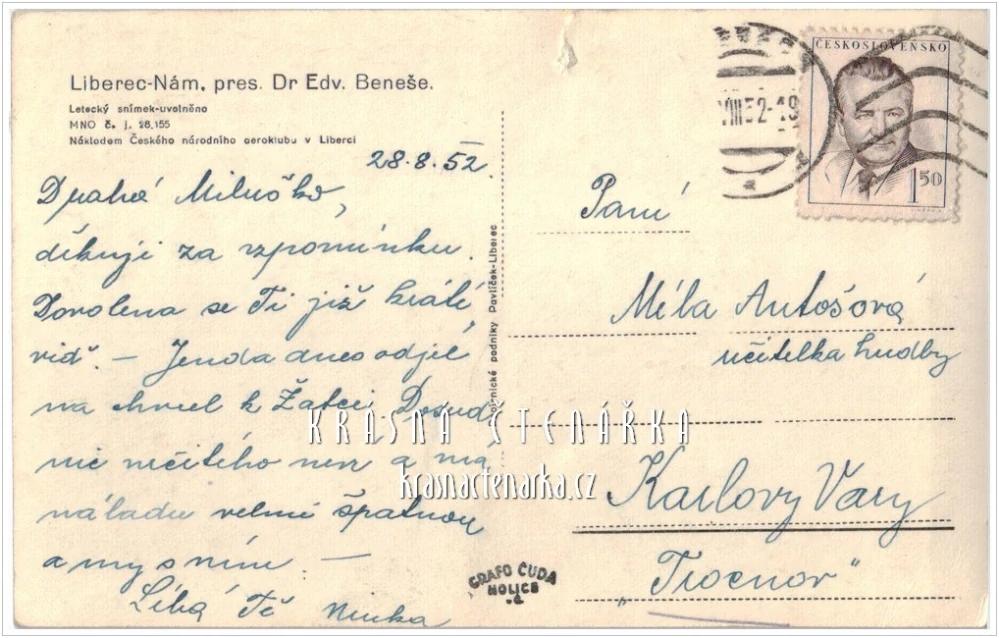 Liberec-Nám. pres. Dr Edv. Beneše.
Letecký snímek-uvolněno
MNO č. j. 26.155
Nákladem Českého národního aeroklubu v Liberci
28.8.52.
Drahá Miluško,
děkuji za vzpomínku.
Dovolena se Ti již krátí
viď. — Jenda dnes odjel
na chmel k Žatci Dosud
nic určitého neví a má
náladu velmi špatnou
a my s ním. —
Líbá Tě Ninka
Pavlíček-Liberec
ČESKOSLOVENSKO
1 50
VIII 52-19
Paní
Míla Antošová
učitelka hudby
Karlovy Vary
„Trocnov"
GRAFO ČUDA
HOLICE
KRÁSNÁ ČTENÁŘKA
krasnactenarka.cz